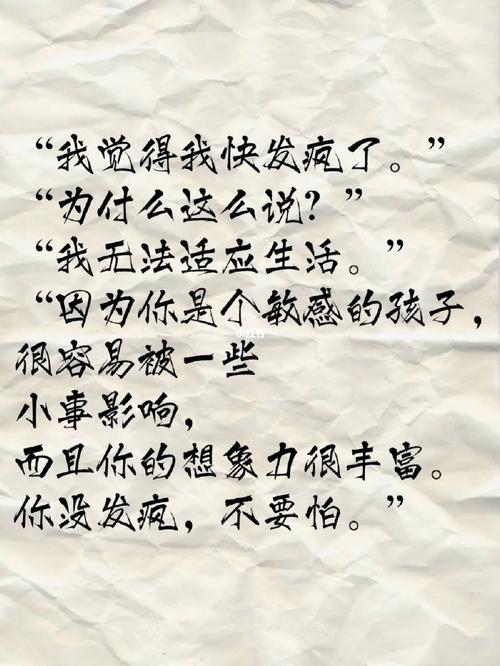 “我觉得我快发疯了。”
“为什么这么说？”
“我无法适应生活。”
“因为你是个敏感的孩子，
很容易被一些
小事影响，
而且你的想象力很丰富。
你没发疯，不要怕。”